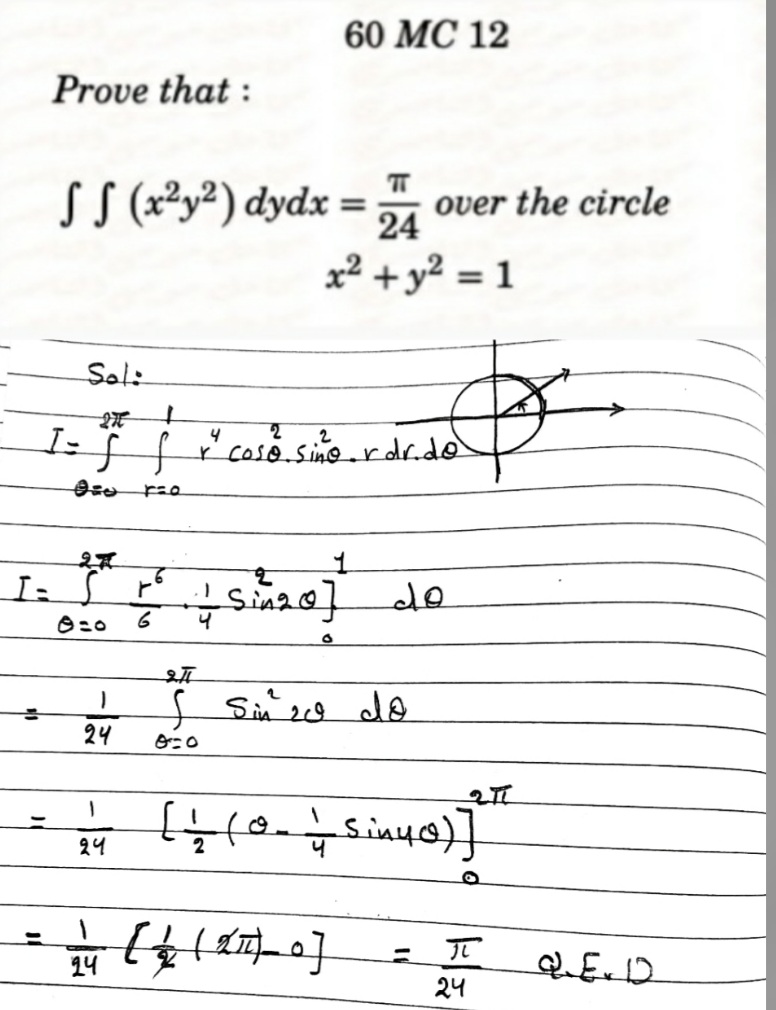 60 MC 12
Prove that :
∫ ∫ (x²y²) dydx = π/24 over the circle
x² + y² = 1
Sol:
I = ∫_{θ=0}^{2π} ∫_{r=0}^{1} r⁴ cos²θ . sin²θ . r dr . dθ
I = ∫_{θ=0}^{2π} r⁶/6 . 1/4 sin²2θ ]₀¹ dθ
= 1/24 ∫_{θ=0}^{2π} Sin² 2θ dθ
= 1/24 [ 1/2 ( θ - 1/4 Sin4θ ) ]₀^{2π}
= 1/24 [ 1/2 ( 2π ) - 0 ] = π/24 Q.E.D